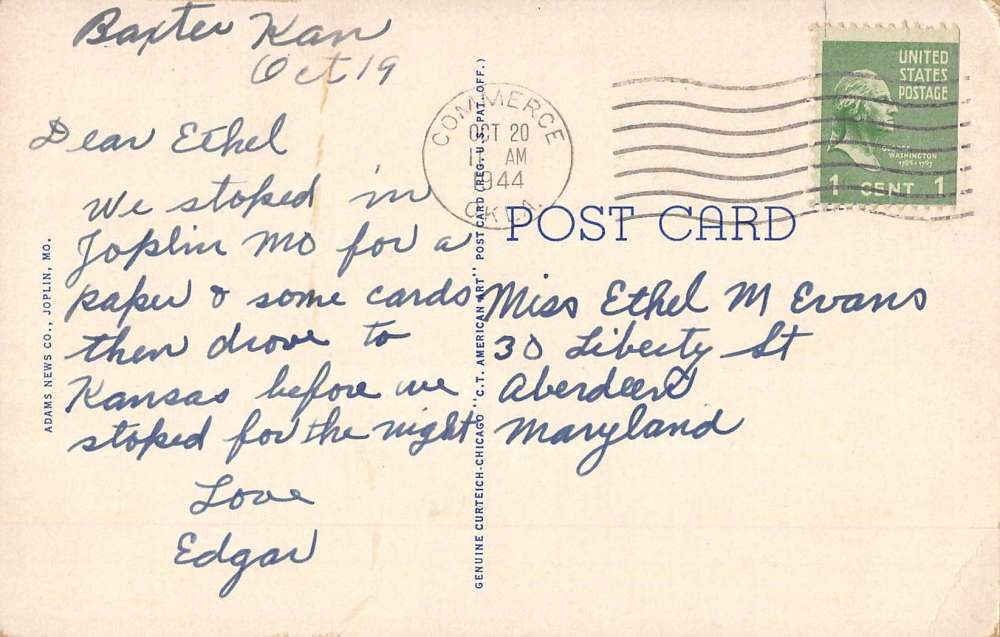 Baxter Kan
Oct 19
Dear Ethel
We stoped in
Joplin Mo for a
paper & some cards
then drove to
Kansas before we
stoped for the night
Love
Edgar
ADAMS NEWS CO., JOPLIN, MO.
GENUINE CURTEICH-CHICAGO "C.T. AMERICAN ART" POST CARD (REG. U.S. PAT. OFF.)
COMMERCE
OCT 20
AM
1944
OKLA.
UNITED
STATES
POSTAGE
GEORGE
WASHINGTON
1789-1797
1 CENT 1
POST CARD
Miss Ethel M Evans
30 Liberty St
Aberdeen
Maryland